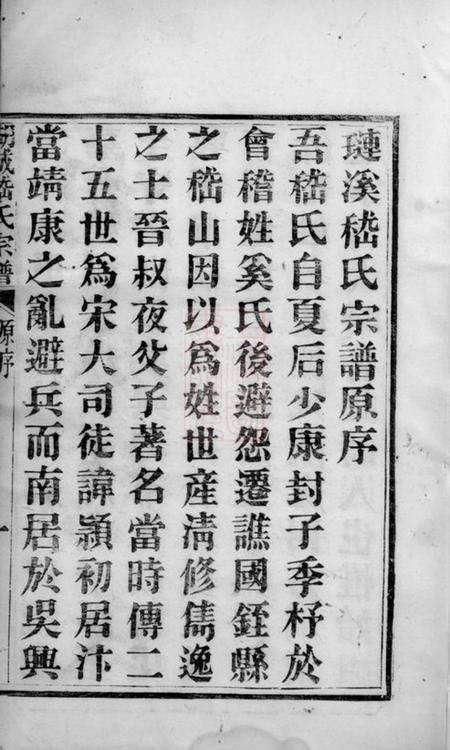 璉溪嵇氏宗譜原序
吾嵇氏自夏后少康封子季杼於
會稽姓奚氏後避怨遷譙國銍縣
之嵇山因以爲姓世産清修雋逸
之士晉叔夜父子著名當時傳二
十五世爲宋大司徒諱潁初居汴
當靖康之亂避兵而南居於吳興
嵇氏宗譜
原序
一